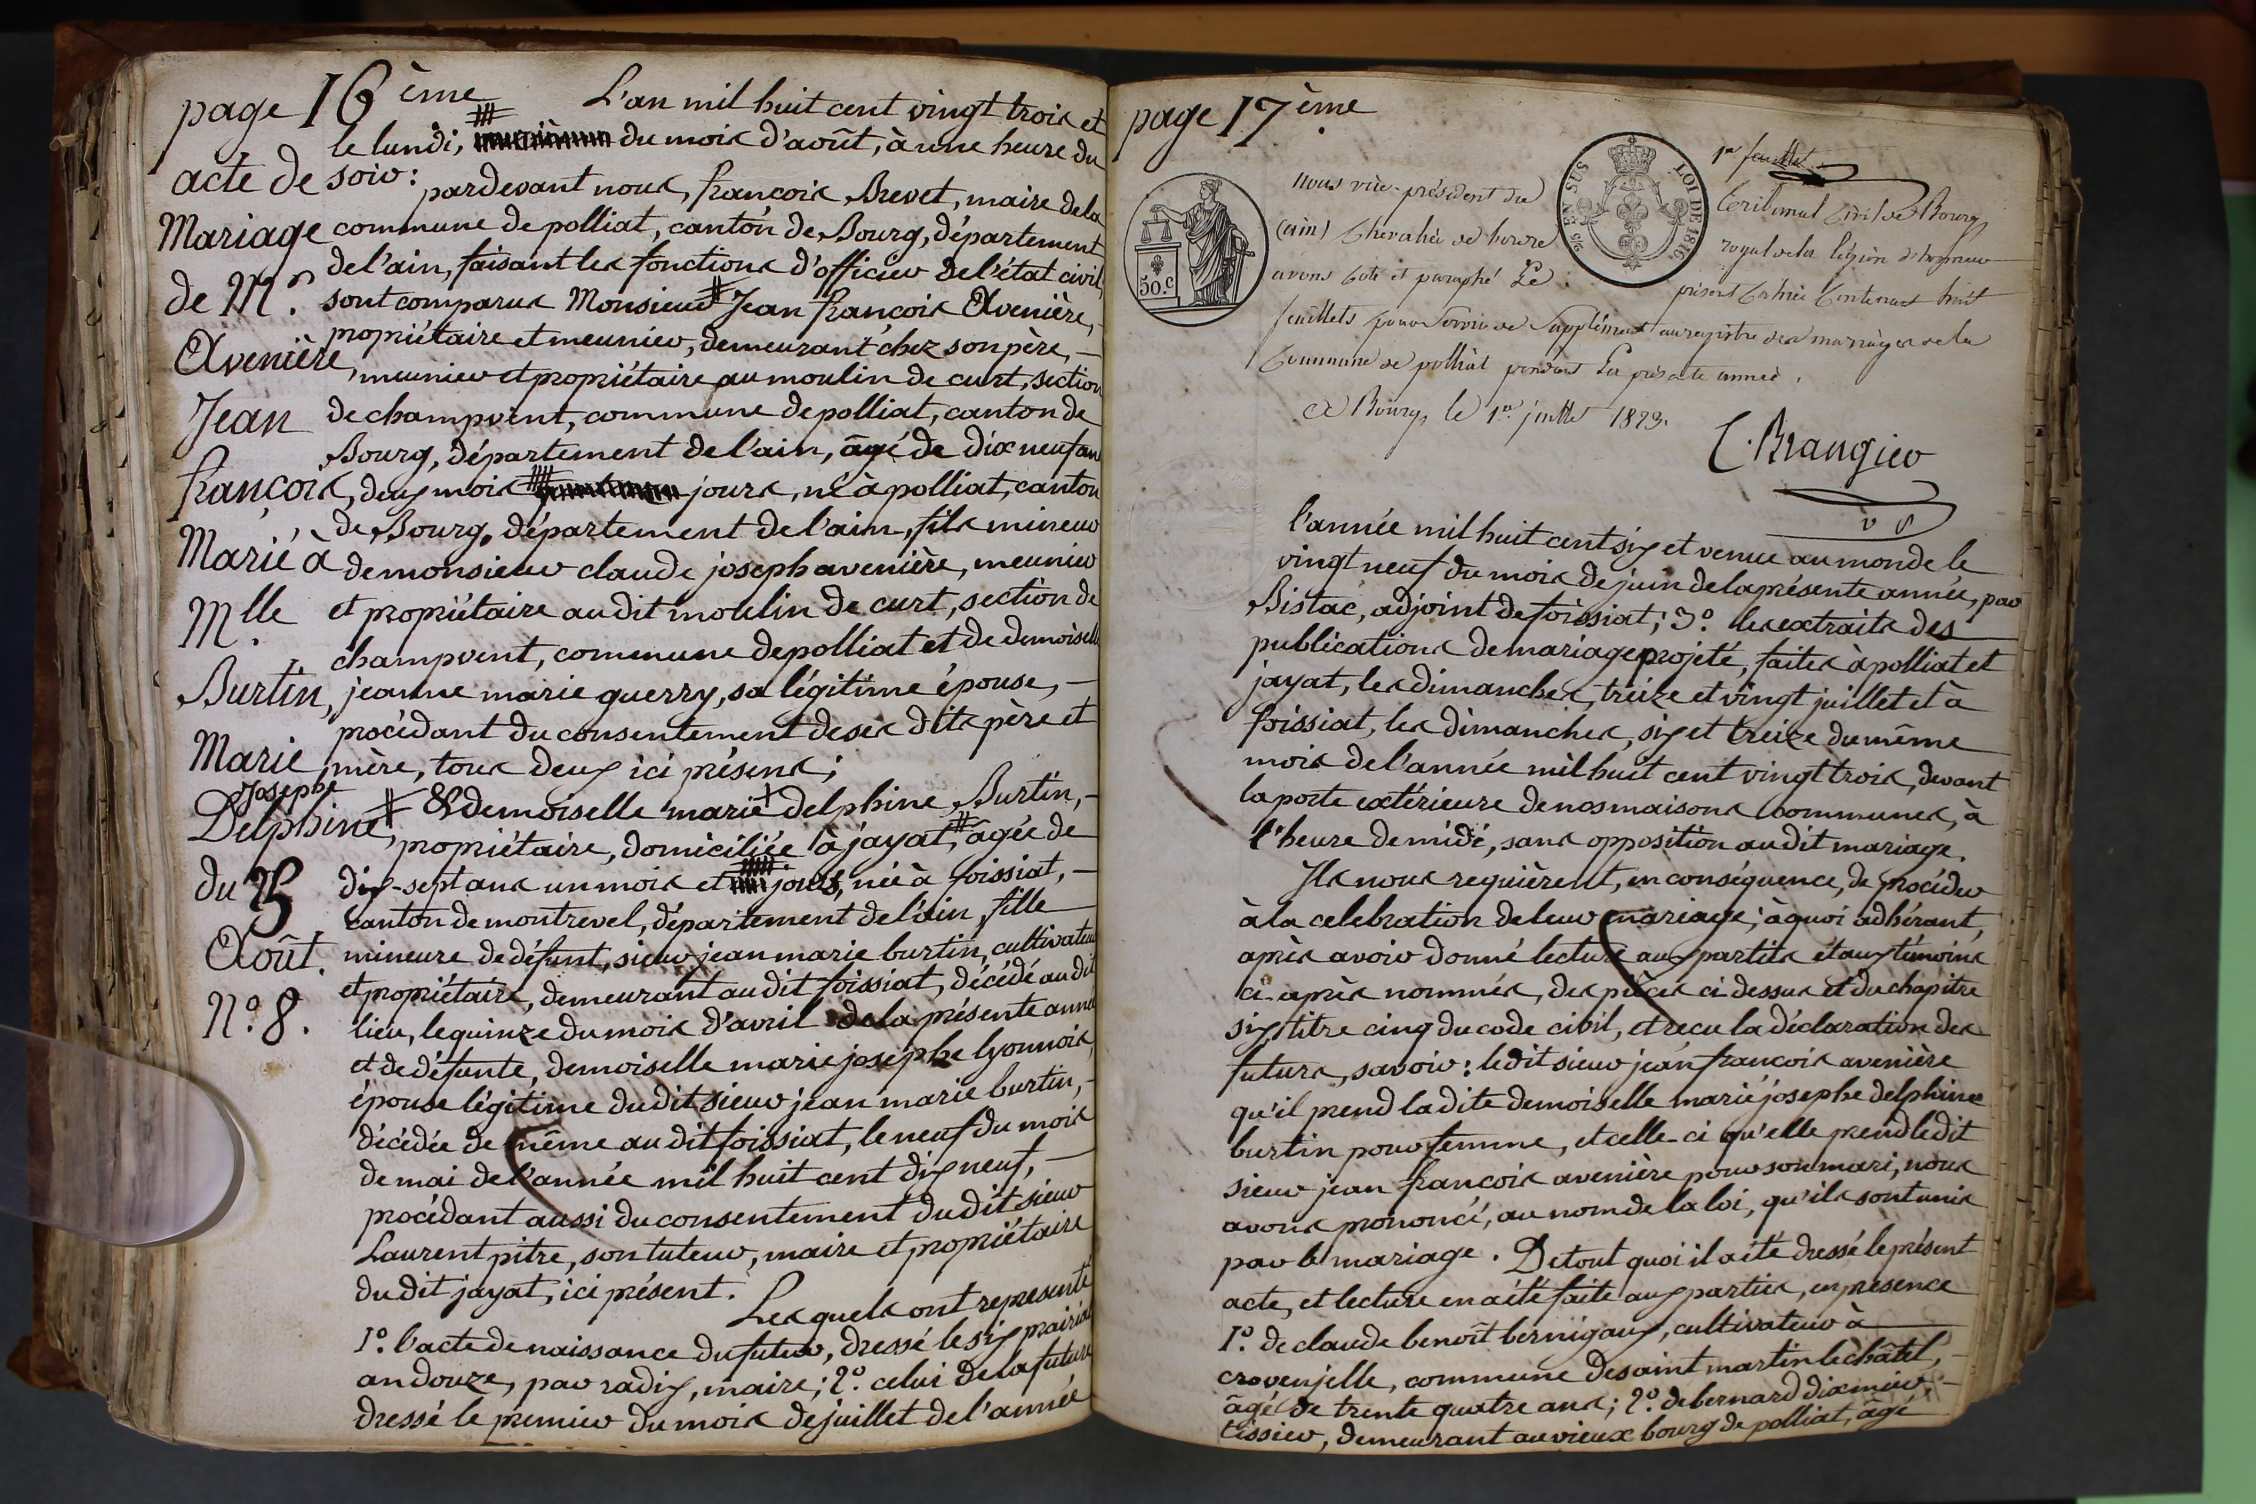 page 16ème
acte de
Mariage
de Mr.
Avenière,
Jean
françois,
Marié à
Mlle
Burtin,
Marie
Josephe
Delphine,
du 25
Août.
N.o 8.
L'an mil huit cent vingt trois et
le lundi, du mois d'août, à une heure du
soir: pardevant nous, françois Brevet, maire dela
commune de polliat, canton de Bourg, département
de l'ain, faisant les fonctions d'officier de l'état civil,
sont comparus Monsieur Jean françois Avenière,
propriétaire et meunier, demeurant chez son père,
meunier et propriétaire au moulin de curt, section
de champvent, commune de polliat, canton de
Bourg, département de l'ain, âgé de dix neuf ans
deux mois jours, né à polliat, canton
de Bourg, département de l'ain, fils mineur
de monsieur claude joseph avenière, meunier
et propriétaire au dit moulin de curt, section de
champvent, commune de polliat et de demoiselle
jeanne marie guerry, sa légitime épouse,
procédant du consentement de ses dits père et
mère, tous deux ici présens;
& demoiselle marie delphine Burtin,
propriétaire, domiciliée à jayat, âgée de
dix-sept ans un mois et jours, née à foissiat,
canton de montrevel, département de l'ain, fille
mineure de défunt, sieur jean marie burtin, cultivateur
et propriétaire, demeurant au dit foissiat, décédé au dit
lieu, le quinze du mois d'avril de la présente année
et de défunte, demoiselle marie josephe lyonnois,
épouse légitime du dit sieur jean marie burtin,
décédée de même au dit foissiat, le neuf du mois
de mai de l'année mil huit cent dix neuf,
procédant aussi du consentement du dit sieur
Laurent pitre, son tuteur, maire et propriétaire
du dit jayat, ici présent.
Les quels ont représenté
1.o l'acte de naissance du futur, dressé le six prairial
an douze, par radix, maire; 2.o celui de la future
dressé le premier du mois de juillet de l'année
page 17ème
50.c
5/5 EN SUS
LOI DE 1816
1er feuillet
nous vice-président du Tribunal Civil de Bourg
(ain) Chevalier de l'ordre royal de la légion d'honneur
avons Coté et paraphé Le présent Cahier Contenant huit
feuillets pour Servir de Supplément au registre des mariages de la
Commune de polliat pendant La présente année.
A Bourg, le 1er juillet 1823.
C. Brangier
l'année mil huit cent six et venue au monde le
vingt neuf du mois de juin de la présente année, par
Bistac, adjoint de foissiat; 3.o les extraits des
publications de mariage projeté, faites à polliat et
jayat, les dimanches, treize et vingt juillet et à
foissiat, les dimanches, six et treize du même
mois de l'année mil huit cent vingt trois, devant
la porte extérieure de nos maisons communes, à
l'heure de midi, sans opposition au dit mariage.
Ils nous requièrent, en conséquence, de procéder
à la celebration de leur mariage; à quoi adhérant,
après avoir donné lecture aux partis et aux témoins
ci-après nommés, des pièces ci-dessus et du chapitre
six, titre cinq du code civil, et reçu la déclaration des
futurs, savoir: le dit sieur jean françois avenière
qu'il prend la dite demoiselle marie josephe delphine
burtin pour femme, et celle-ci qu'elle prend le dit
sieur jean françois avenière pour son mari, nous
avons prononcé, au nom de la loi, qu'ils sont unis
par le mariage. De tout quoi il a été dressé le présent
acte, et lecture en a été faite aux parties, en présence
1.o de claude benoît bernigaux, cultivateur à
crovenjelle, commune de saint martin le châtel,
âgé de trente quatre ans; 2.o de bernard dixmier,
tissier, demeurant au vieux bourg de polliat, âgé